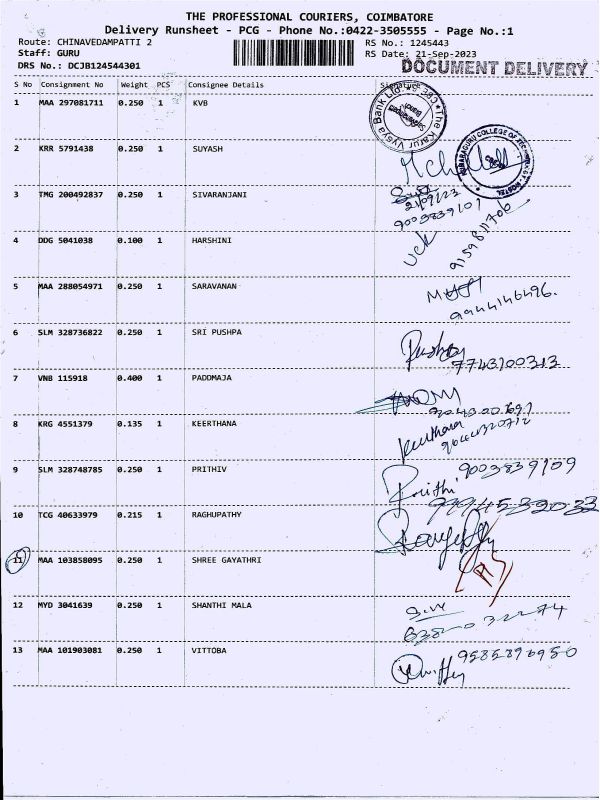 THE PROFESSIONAL COURIERS, COIMBATORE
Delivery Runsheet - PCG - Phone No.:0422-3505555 - Page No.:1
Route: CHINAVEDAMPATTI 2 RS No.: 1245443
Staff: GURU RS Date: 21-Sep-2023
DRS No.: DCJB124544301 DOCUMENT DELIVERY
S No Consignment No Weight PCS Consignee Details Signature
1 MAA 297081711 0.250 1 KVB
The Karur Vysya Bank Ltd.
2 KRR 5791438 0.250 1 SUYASH
3 TMG 200492837 0.250 1 SIVARANJANI
21/09/23
9003839109
4 DDG 5041038 0.100 1 HARSHINI
5 MAA 288054971 0.250 1 SARAVANAN
9944146496.
6 SLM 328736822 0.250 1 SRI PUSHPA
Pushpa
7743100313
7 VNB 115918 0.400 1 PADDMAJA
8 KRG 4551379 0.135 1 KEERTHANA
Keerthana
9 SLM 328748785 0.250 1 PRITHIV
9003839109
Prithi
10 TCG 40633979 0.215 1 RAGHUPATHY
11 MAA 103858095 0.250 1 SHREE GAYATHRI
12 MYD 3041639 0.250 1 SHANTHI MALA
13 MAA 101903081 0.250 1 VITTOBA
9585896950